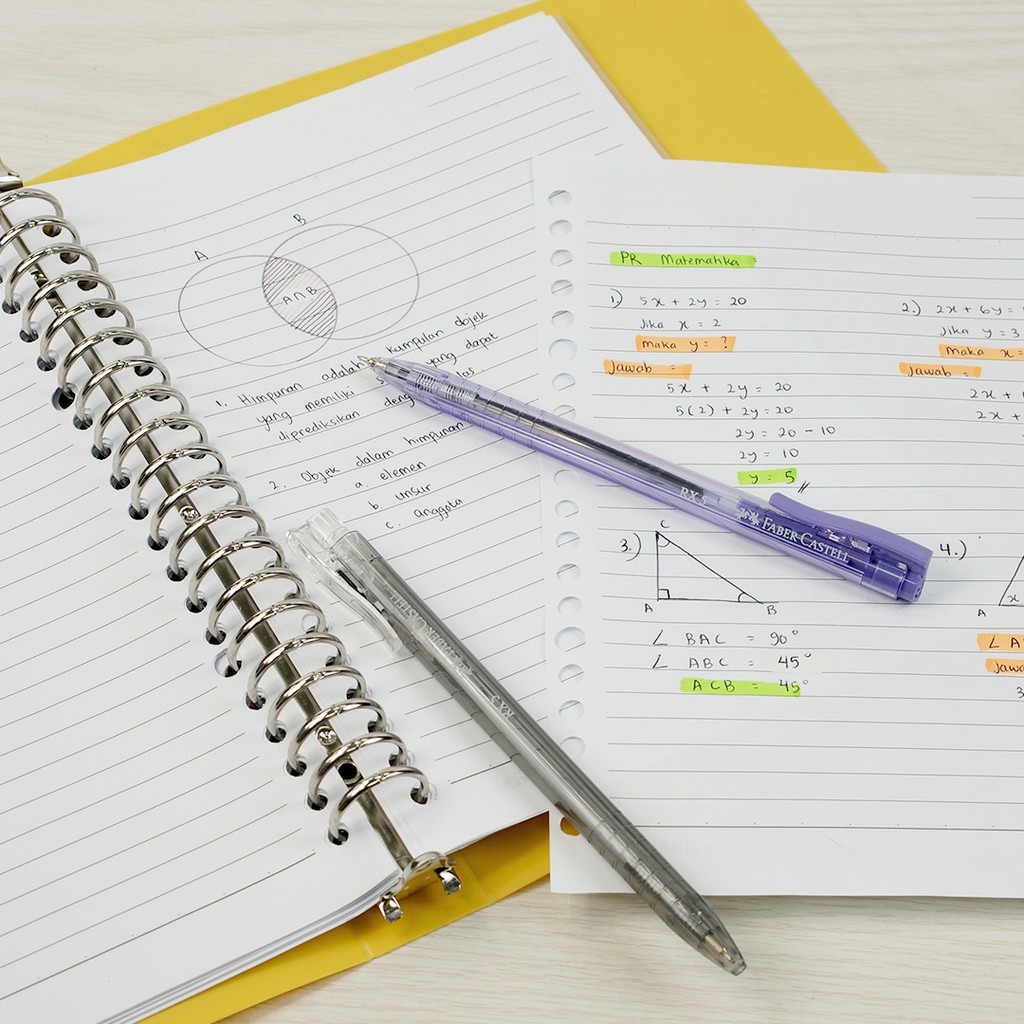 A
B
A∩B
1. Himpunan adalah kumpulan objek
yang memiliki yang dapat
diprediksikan
2. Objek dalam himpunan
a. elemen
b. unsur
c. anggota
PR Matematika
1) 5x + 2y = 20
Jika x = 2
maka y = ?
Jawab =
5x + 2y = 20
5(2) + 2y = 20
2y = 20 - 10
2y = 10
y = 5
2.) 2x + 6y =
Jika y = 3
maka x =
Jawab =
2x +
2x +
3)
C
A
B
∠ BAC = 90°
∠ ABC = 45°
ACB = 45°
4.)
x
A
∠ A
Jawa
3
RX5
FABER-CASTELL
FABER-CASTELL
RX5